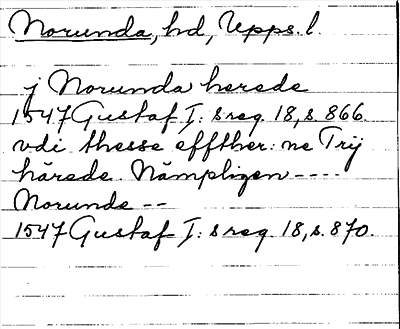 Norunda, hd, Upps. l.
j Norunda herede
1547 Gustaf I: s reg. 18, s. 866.
vdi thesse effther: ne Trij
härede. Nämpligen ----
Norunde --
1547 Gustaf I: s reg. 18, s. 870.